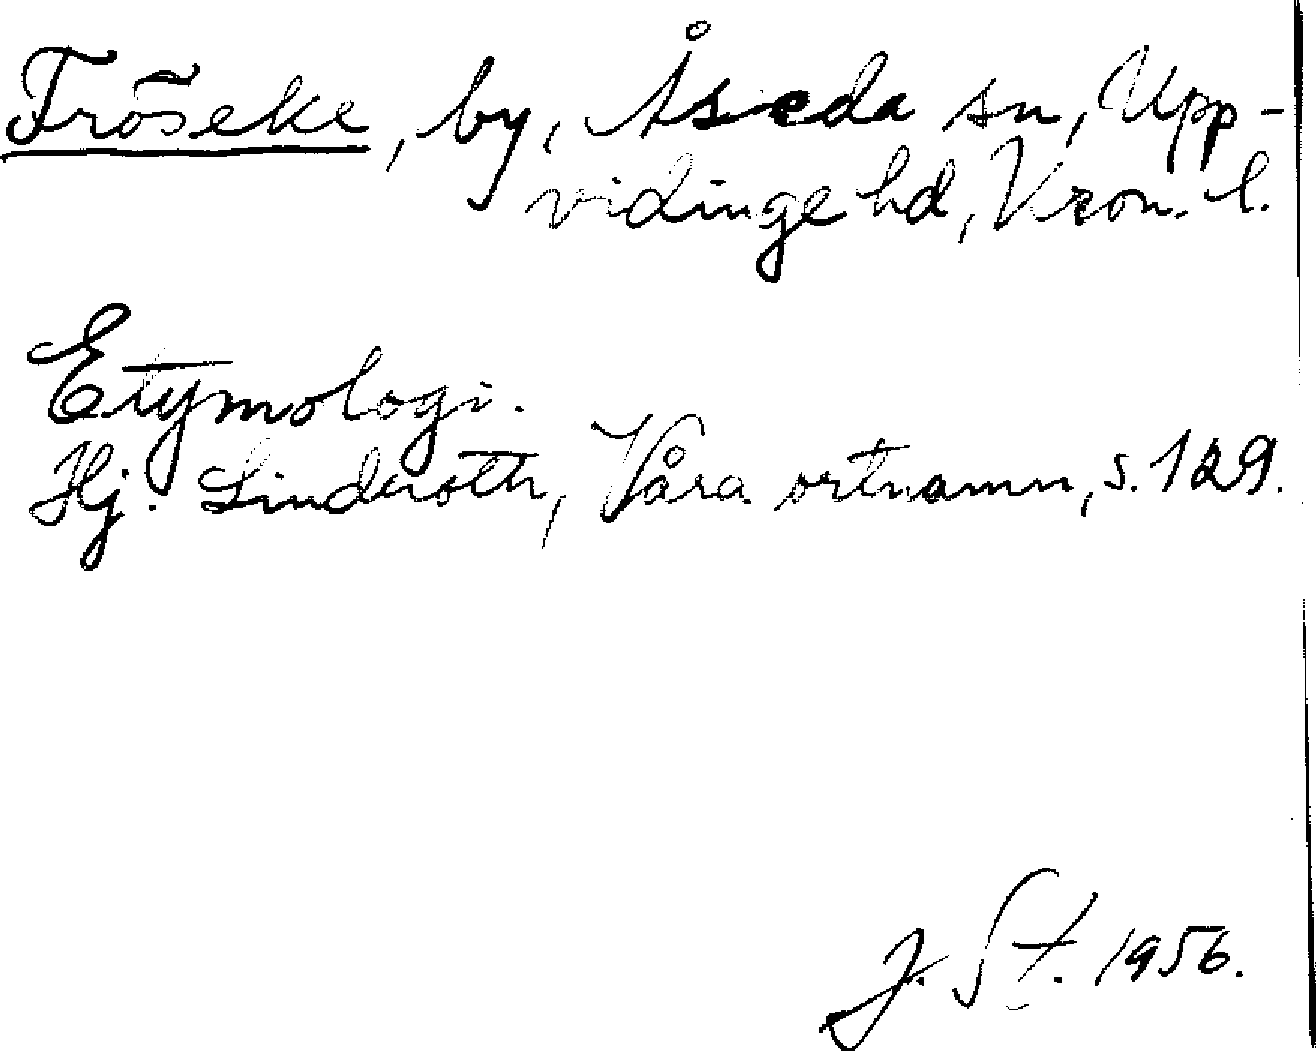 Fröseke, by, Åseda sn, Upp-
vidinge hd, Kron. l.
Etymologi.
Hj. Lindroth, Våra ortnamn, s. 129.
J. St. 1956.